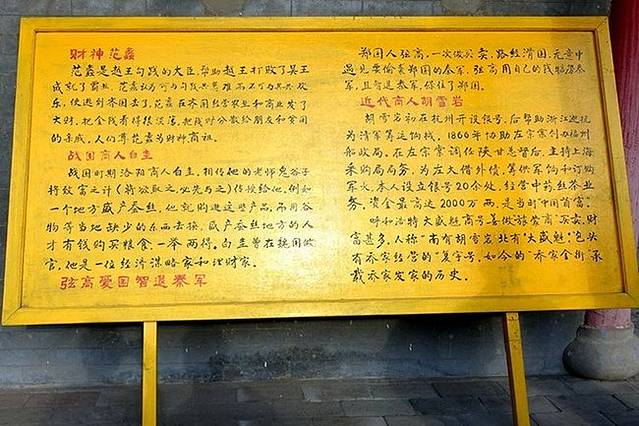 财神范蠡
范蠡是越王勾践的大臣,帮助越王打败了吴王
成就了霸业,范蠡认为可与勾践共患难而不可与其共欢
乐,便逃到齐国去了,范蠡在齐国经营农业和商业发了
大财,把金钱看得很淡薄,把钱财分散给朋友和贫困
的亲戚,人们尊范蠡为财神商祖。
战国商人白圭
战国时期洛阳商人白圭,相传他的老师鬼谷子
将致富之计(将欲取之,必先与之)传授给他,例如
一个地方盛产蚕丝,他就购进这些产品,而用谷
物等当地缺少的东西去换,盛产蚕丝地方的人
才有钱购买粮食,一举两得。白圭曾在魏国做
官,他是一位经济谋略家和理财家。
弦高爱国智退秦军
郑国人弦高,一次做买卖,路经滑国,无意中
遇见要偷袭郑国的秦军,弦高用自己的钱犒劳秦
军,且智退秦军,保住了郑国。
近代商人胡雪岩
胡雪岩初在杭州开设银号,后帮助浙江巡抚
为清军筹运饷械。1866年协助左宗棠创办福州
船政局。在左宗棠调任陕甘总督后,主持上海
采购局局务,为左大借外债,筹供军饷和订购
军火,本人设立银号20余处,经营中药丝茶业
务,资金最高达2000万两,是当时"中国首富"。
呼和浩特大盛魁商号善做旅蒙商买卖,财
富甚多,人称"南有胡雪岩,北有大盛魁"。包头
有乔家经营的"复字号",如今的"乔家金街"承
载乔家发家的历史。